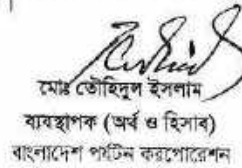 মোঃ তৌহিদুল ইসলাম
ব্যবস্থাপক (অর্থ ও হিসাব)
বাংলাদেশ পর্যটন করপোরেশন